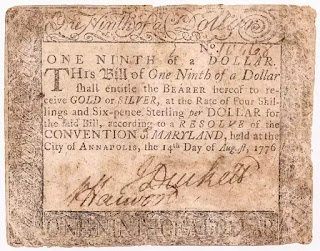 One Ninth of a Dollar
No.
ONE NINTH of a DOLLAR.
THIS Bill of One Ninth of a Dollar
shall entitle the BEARER hereof to re-
ceive GOLD or SILVER, at the Rate of Four Shil-
lings and Six-pence Sterling per DOLLAR for
the said Bill, according to a RESOLVE of the
CONVENTION of MARYLAND, held at the
City of ANNAPOLIS, the 14th Day of August, 1776
J Duckett
ONE NINTH OF A DOLLAR